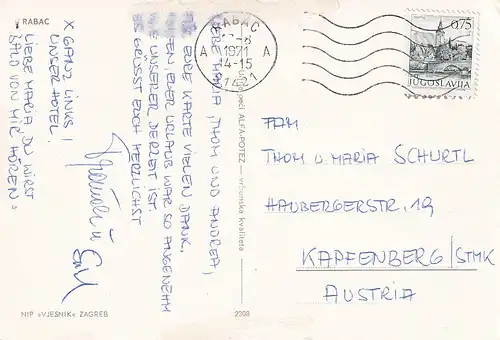 RABAC
X GANZ LINKS!
UNSER HOTEL!
LIEBE MARIA DU WIRST
BALD VON MIR HÖREN.
LIEBE MARIA, THOM UND ANDREA,
FÜR EURE KARTE VIELEN DANK.
EUER URLAUB WAR SO ANGENEHM
WIE UNSERER DERZEIT IST.
ES GRÜSST EUCH HERZLICHST
NIP »VJESNIK« ZAGREB
2308
ALFA-POTEZ — vrhunska kvaliteta
RABAC
1971
14-15
A A
0,75
JUGOSLAVIJA
FAM
THOM U. MARIA SCHURTL
HAUBERGERSTR. 19
KAPFENBERG/STMK
AUSTRIA